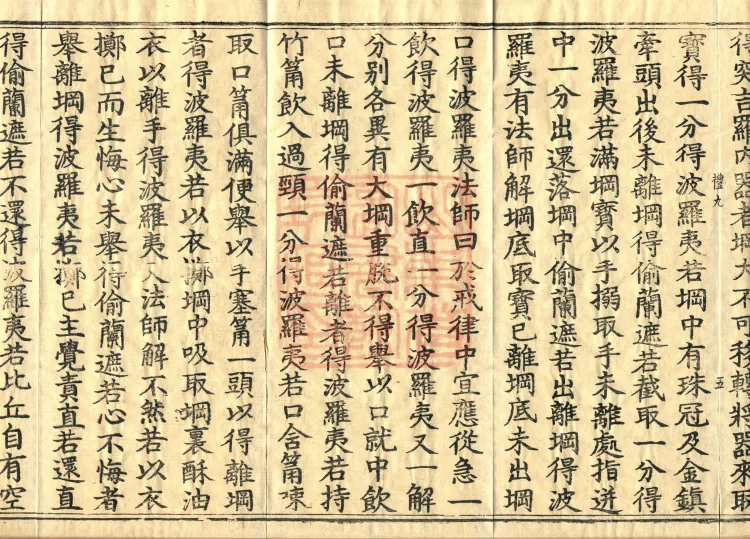 得突吉羅內器者堈大不可移轉將器來取
寶得一分得波羅夷若堈中有珠冠及金鎮
牽頭出後未離堈得偷蘭遮若截取一分得
波羅夷若滿堈寶以手搦取手未離處指迸
中一分出還落堈中偷蘭遮若出離堈得波
羅夷有法師解堈底取寶已離堈底未出堈
口得波羅夷法師曰於戒律中宜應從急一
飲得波羅夷一飲直一分得波羅夷又一解
分別各異有大堈重脫不得舉以口就中飲
口未離堈得偷蘭遮若離者得波羅夷若持
竹筩飲入過頸一分得波羅夷若口含筩唻
取口筩俱滿便舉以手塞筩一頭以得離堈
者得波羅夷若以衣擲堈中吸取堈裏酥油
衣以離手得波羅夷入法師解不然若以衣
擲已而生悔心未舉得偷蘭遮若心不悔者
舉離堈得波羅夷若擲已主覺責直若還直
得偷蘭遮若不還得波羅夷若比丘自有空
禮九
五